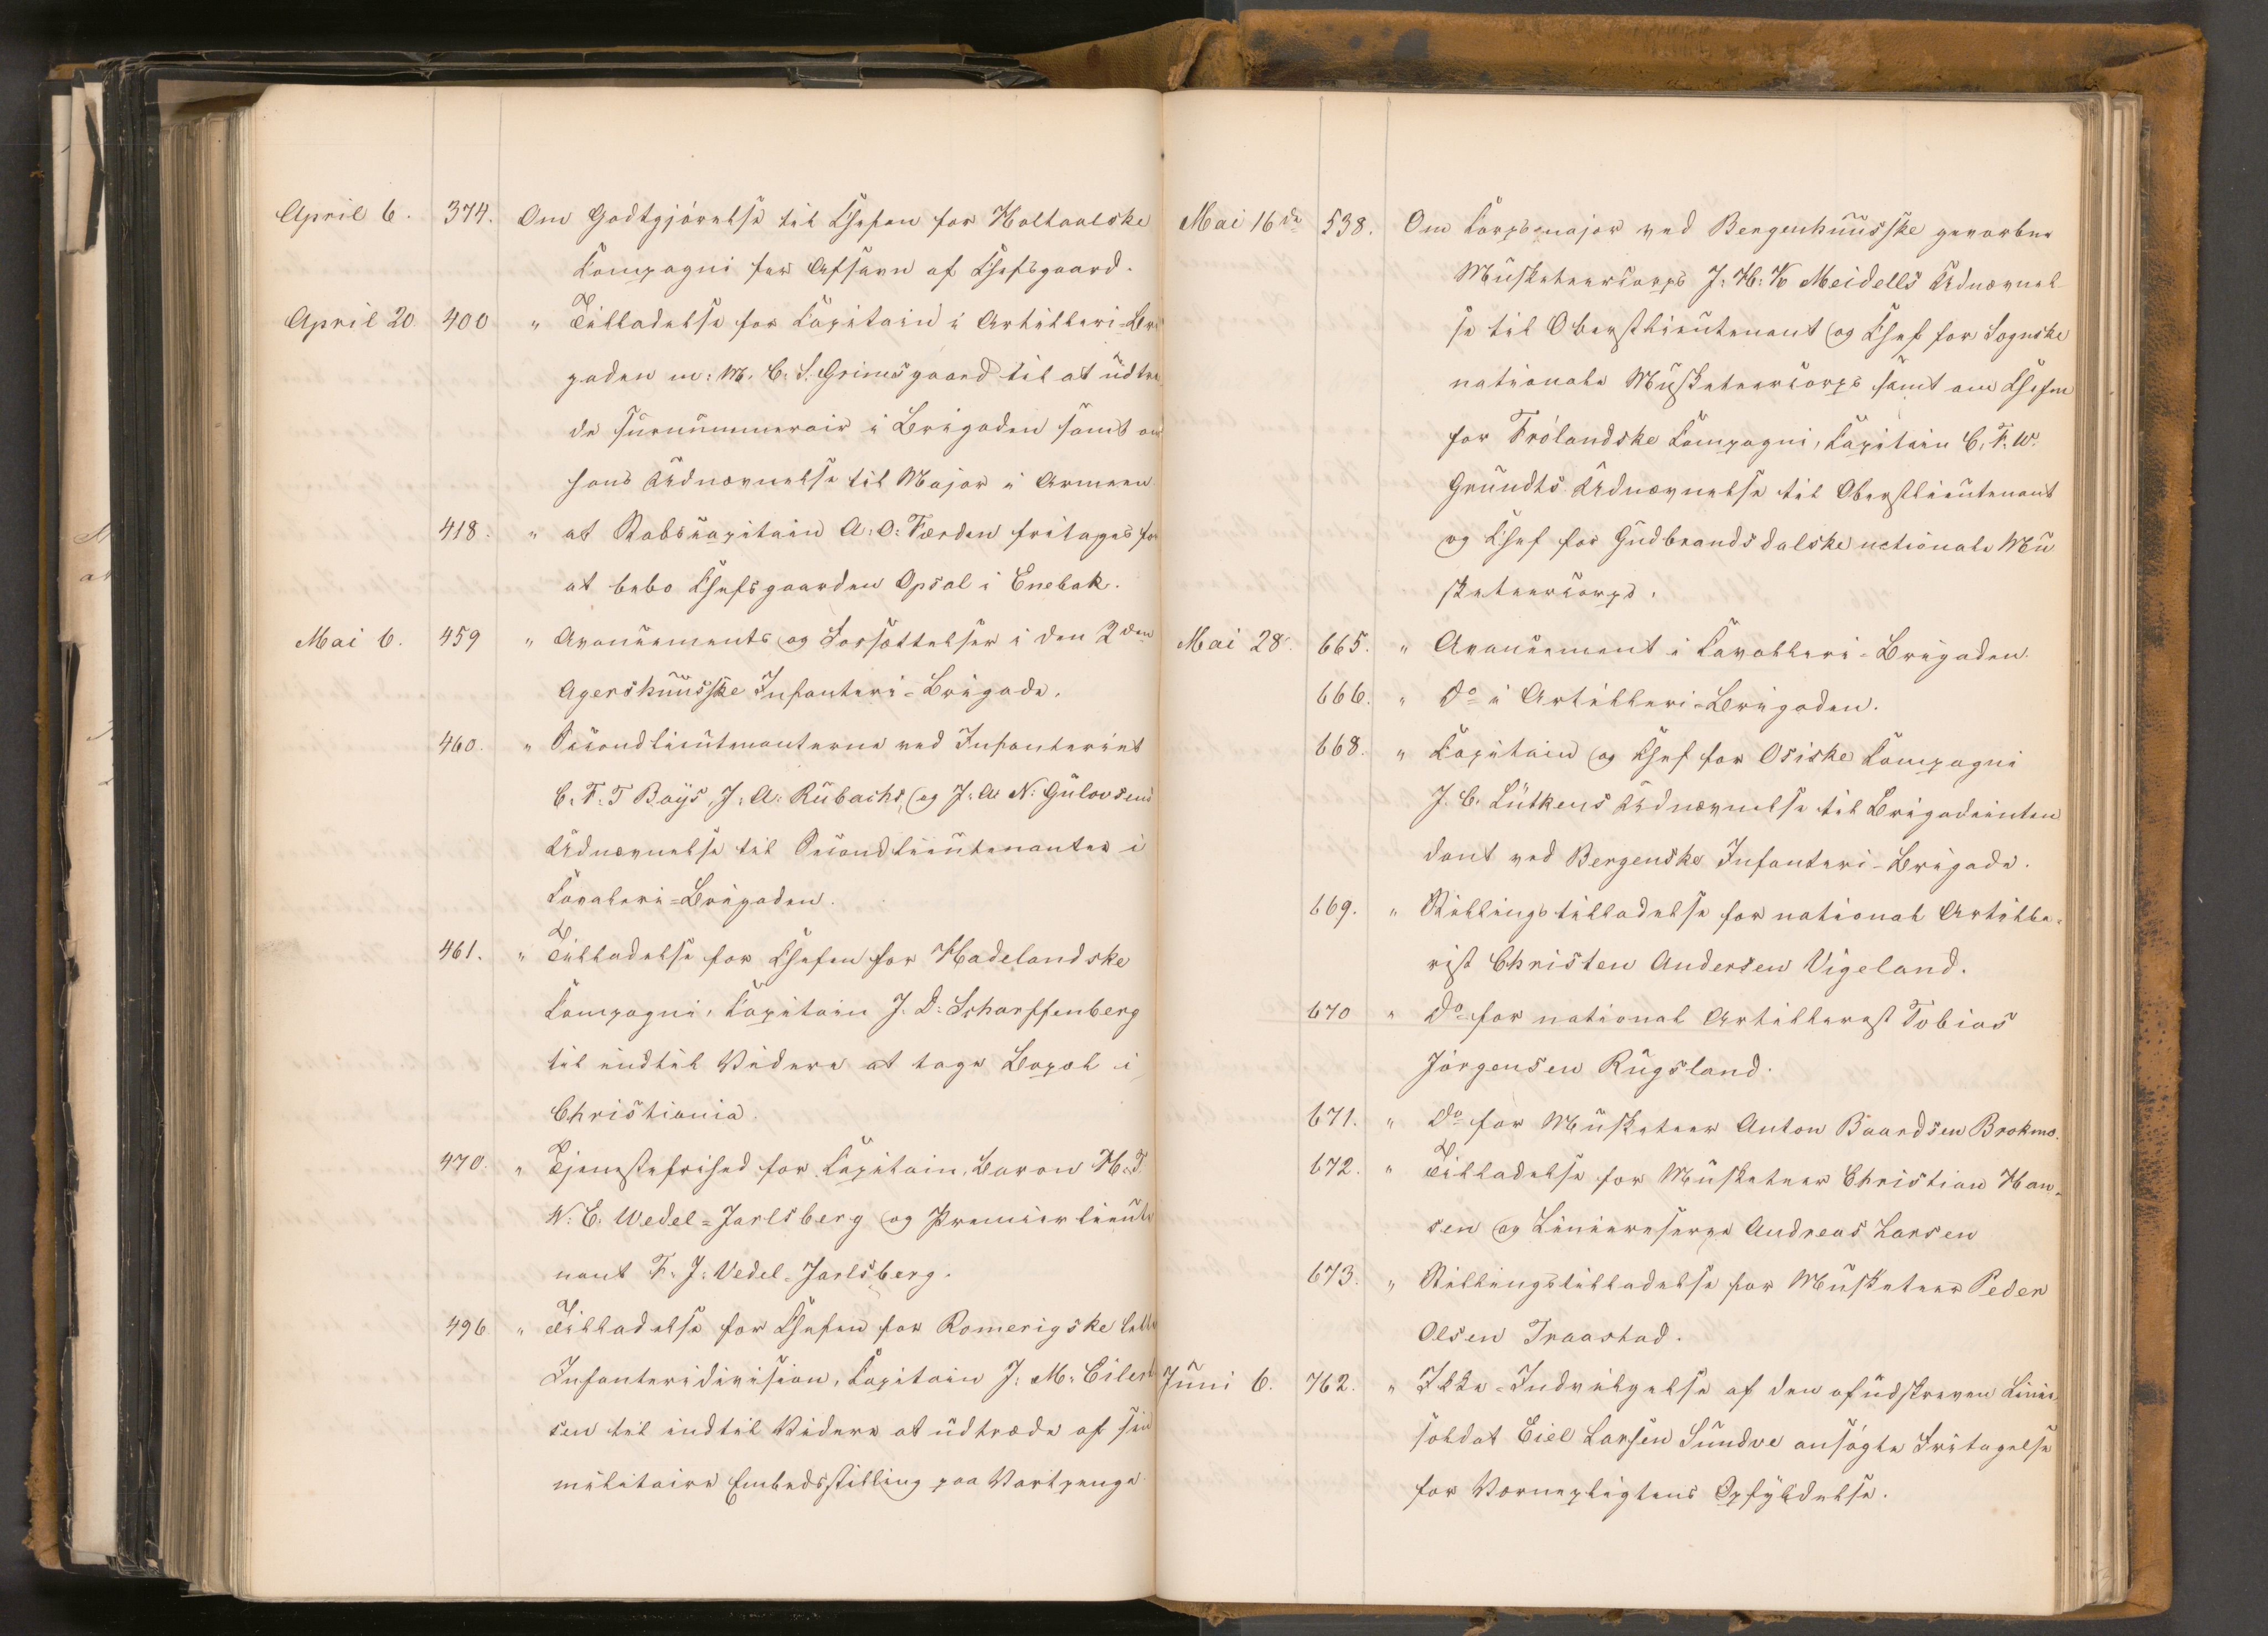 April 6. 374. Om Godtgjörelse til Chefen for Holtaalske
Compagni for Afsavn af Chefsgaard.
April 20. 400 " Tilladelse for Capitain i Artilleri-Bri
gaden m: M. C. S. Grimsgaard til at udtræ
de surnummerair i Brigaden samt om
hans Udnævnelse til Major i Armeen.
418. " at Stabscapitain A: O: Færden fritages for
at bebo Chefsgaarden Opsal i Enebak.
Mai 6. 459 " Avancements og Forsættelser i den 2den
Agershuusske Infanteri-Brigade.
460. " Secondlieutenanterne ved Infanteriet
C. F. T Boÿs, J. A. Rubachs, og J. A. N. Gulovsens
Udnævnelse til Secondlieutenanter i
Cavaleri-Brigaden.
461. " Tilladelse for Chefen for Hadelandske
Compagni, Capitain J. D. Scharffenberg
til indtil Videre at tage Bopæl i
Christiania.
470. " Tjenestefrihed for Capitain, Baron H. T.
N. C. Wedel-Jarlsberg og Premierlieute
nant F. J. Vedel-Jarlsberg.
496. " Tilladelse for Chefen for Romerigske lette
Infanteridivision, Capitain J. M. Eilert
sen til indtil Videre at udtræde af sin
militaire Embedsstilling paa Vartpenge.
Mai 16de 538. Om Corpsmajor ved Bergenhuusske gevorbne
Musketeercorps J. H. K Meidells Udnævnel
se til Oberstlieutenant og Chef for Sognske
nationale Musketeercorps samt om Chefen
for Frólandske Compagni, Capitain C. F. W.
Grundts Udnævnelse til Oberstlieutenant
og Chef for Gudbrandsdalske nationale Mu
sketeercorps.
Mai 28. 665. " Avancement i Cavalleri-Brigaden.
666. " do i Artilleri-Brigaden.
668. " Capitain og Chef for Osiske Compagni
J. C. Lütkens Udnævnelse til Brigadeinten
dant ved Bergenske Infanteri-Brigade.
669. " Stillingstilladelse for national Artille-
rist Christen Andersen Vigeland.
670 " do for national Artillerist Tobias
Jörgensen Rugsland.
671. " do for Musketeer Anton Baardsen Brokmo.
672. " Tilladelse for Musketeer Christian Han-
sen og Liniereserve Andreas Larsen
673. " Stillingstilladelse for Musketeer Peder
Olsen Traastad.
Juni 6. 762. " Ikke-Indvilgelse af den afudskreven Linie
soldat Eiel Larsen Sundve ansögte Fritagelse
for Værnepligtens Opfyldelse.